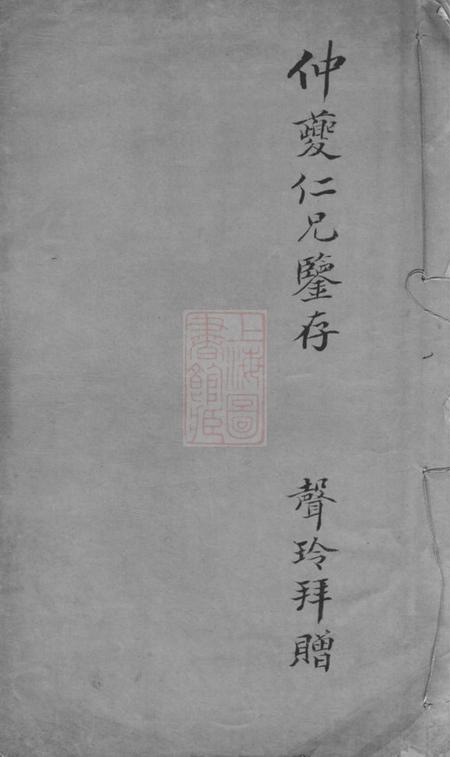 仲夔仁兄鑒存
聲玲拜贈
上海圖
書館藏